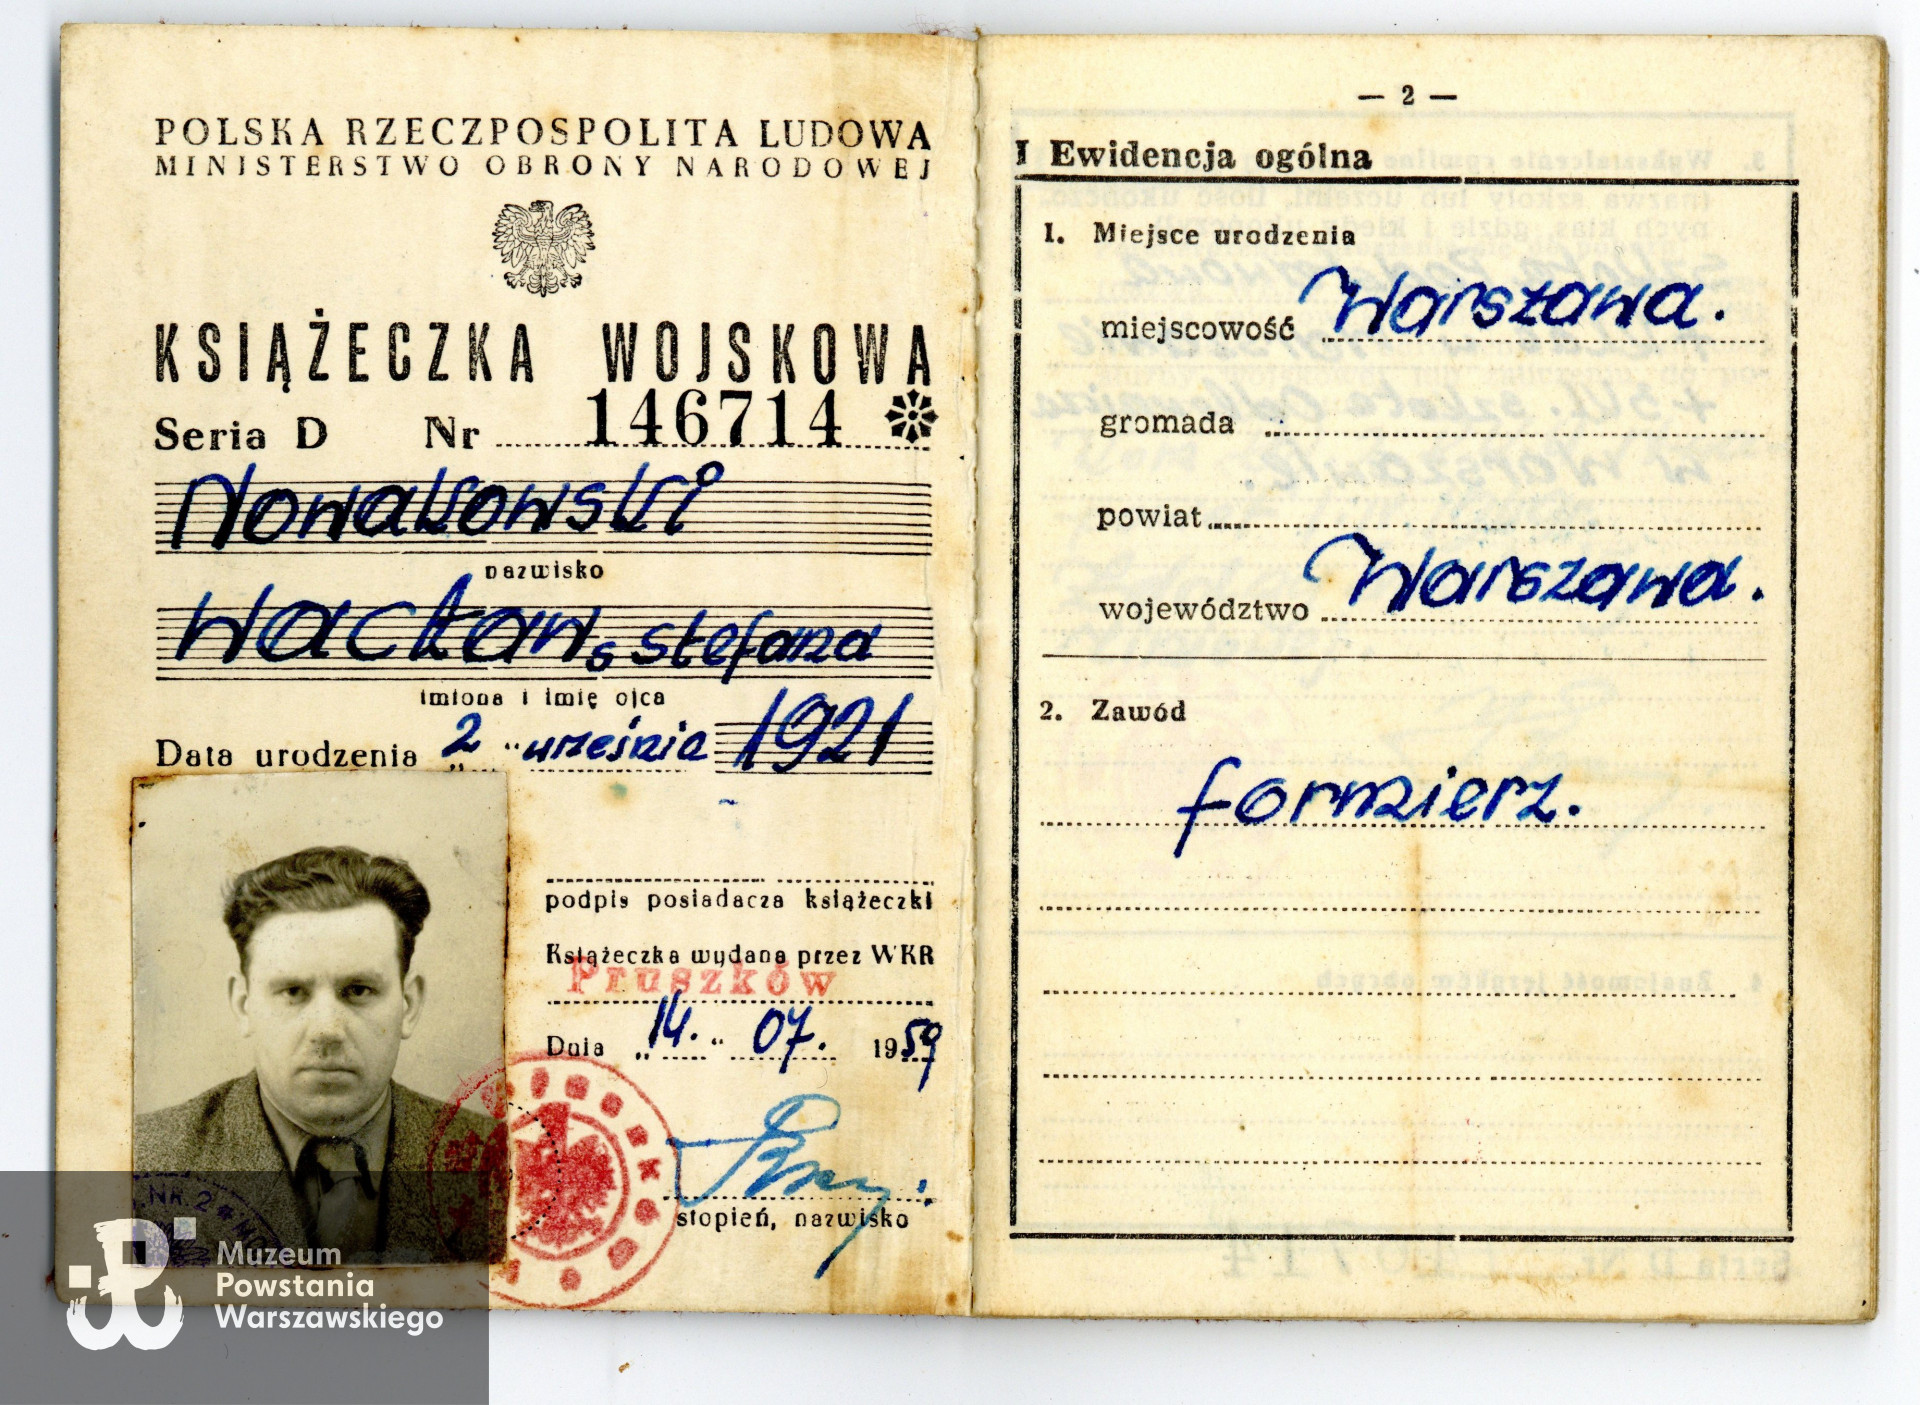 POLSKA RZECZPOSPOLITA LUDOWA
MINISTERSTWO OBRONY NARODOWEJ
KSIĄŻECZKA WOJSKOWA
Seria D Nr 146714
Nowakowski
nazwisko
Wacław, s Stefana
imiona i imię ojca
Data urodzenia „2" września 1921
podpis posiadacza książeczki
Książeczka wydana przez WKR
Pruszków
Dnia „14." 07. 1959
stopień, nazwisko
NR 2
Muzeum
Powstania
Warszawskiego
— 2 —
I Ewidencja ogólna
1. Miejsce urodzenia
miejscowość Warszawa.
gromada
powiat
województwo Warszawa.
2. Zawód
formierz.